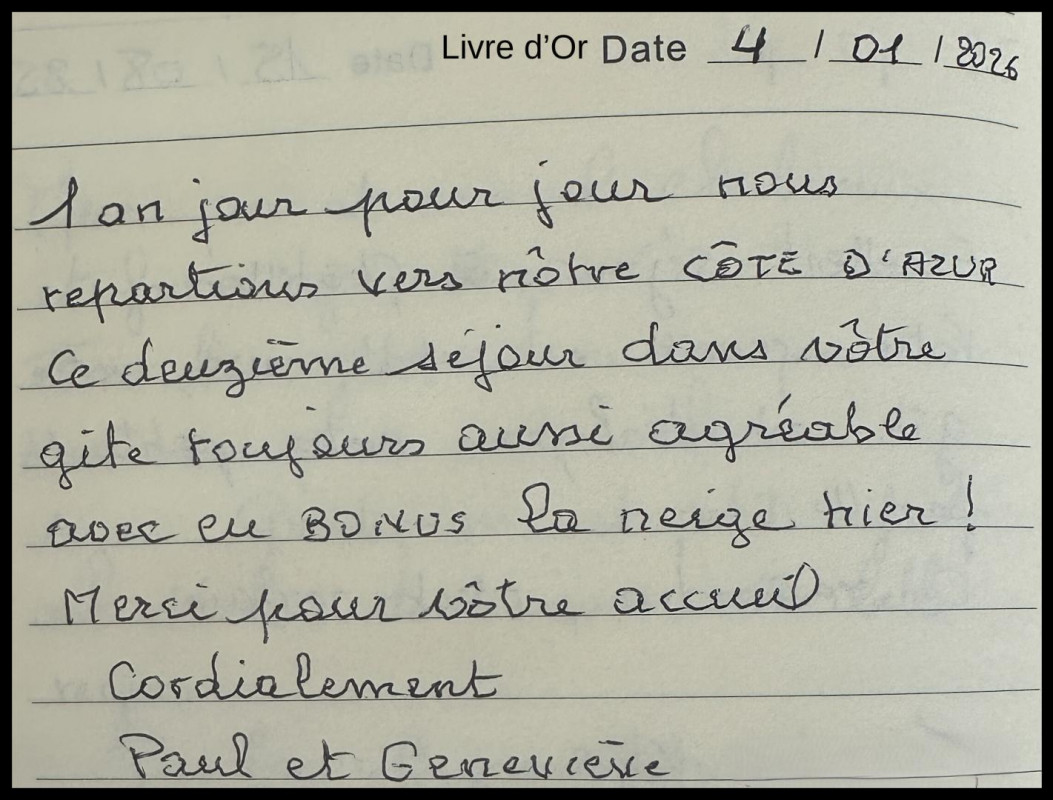 Livre d'Or Date 4 / 01 / 2026
1 an jour pour jour nous
repartions vers nôtre CÔTE D'AZUR
Ce deuzième séjour dans vôtre
gite toujours aussi agréable
avec en BONUS la neige hier !
Merci pour vôtre accueil
Cordialement
Paul et Geneviève